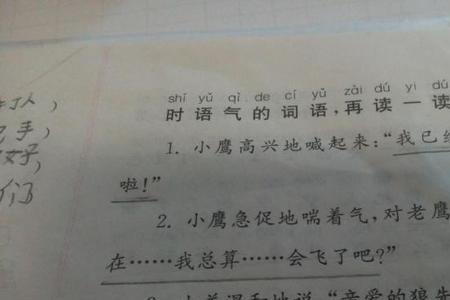 shí yǔ qì de cí yǔ zài dú yi dú
时语气的词语,再读一读
1. 小鹰高兴地喊起来:“我已经
啦!”
2. 小鹰急促地喘着气,对老鹰
在……我总算……会飞了吧?”
人)
手)
们